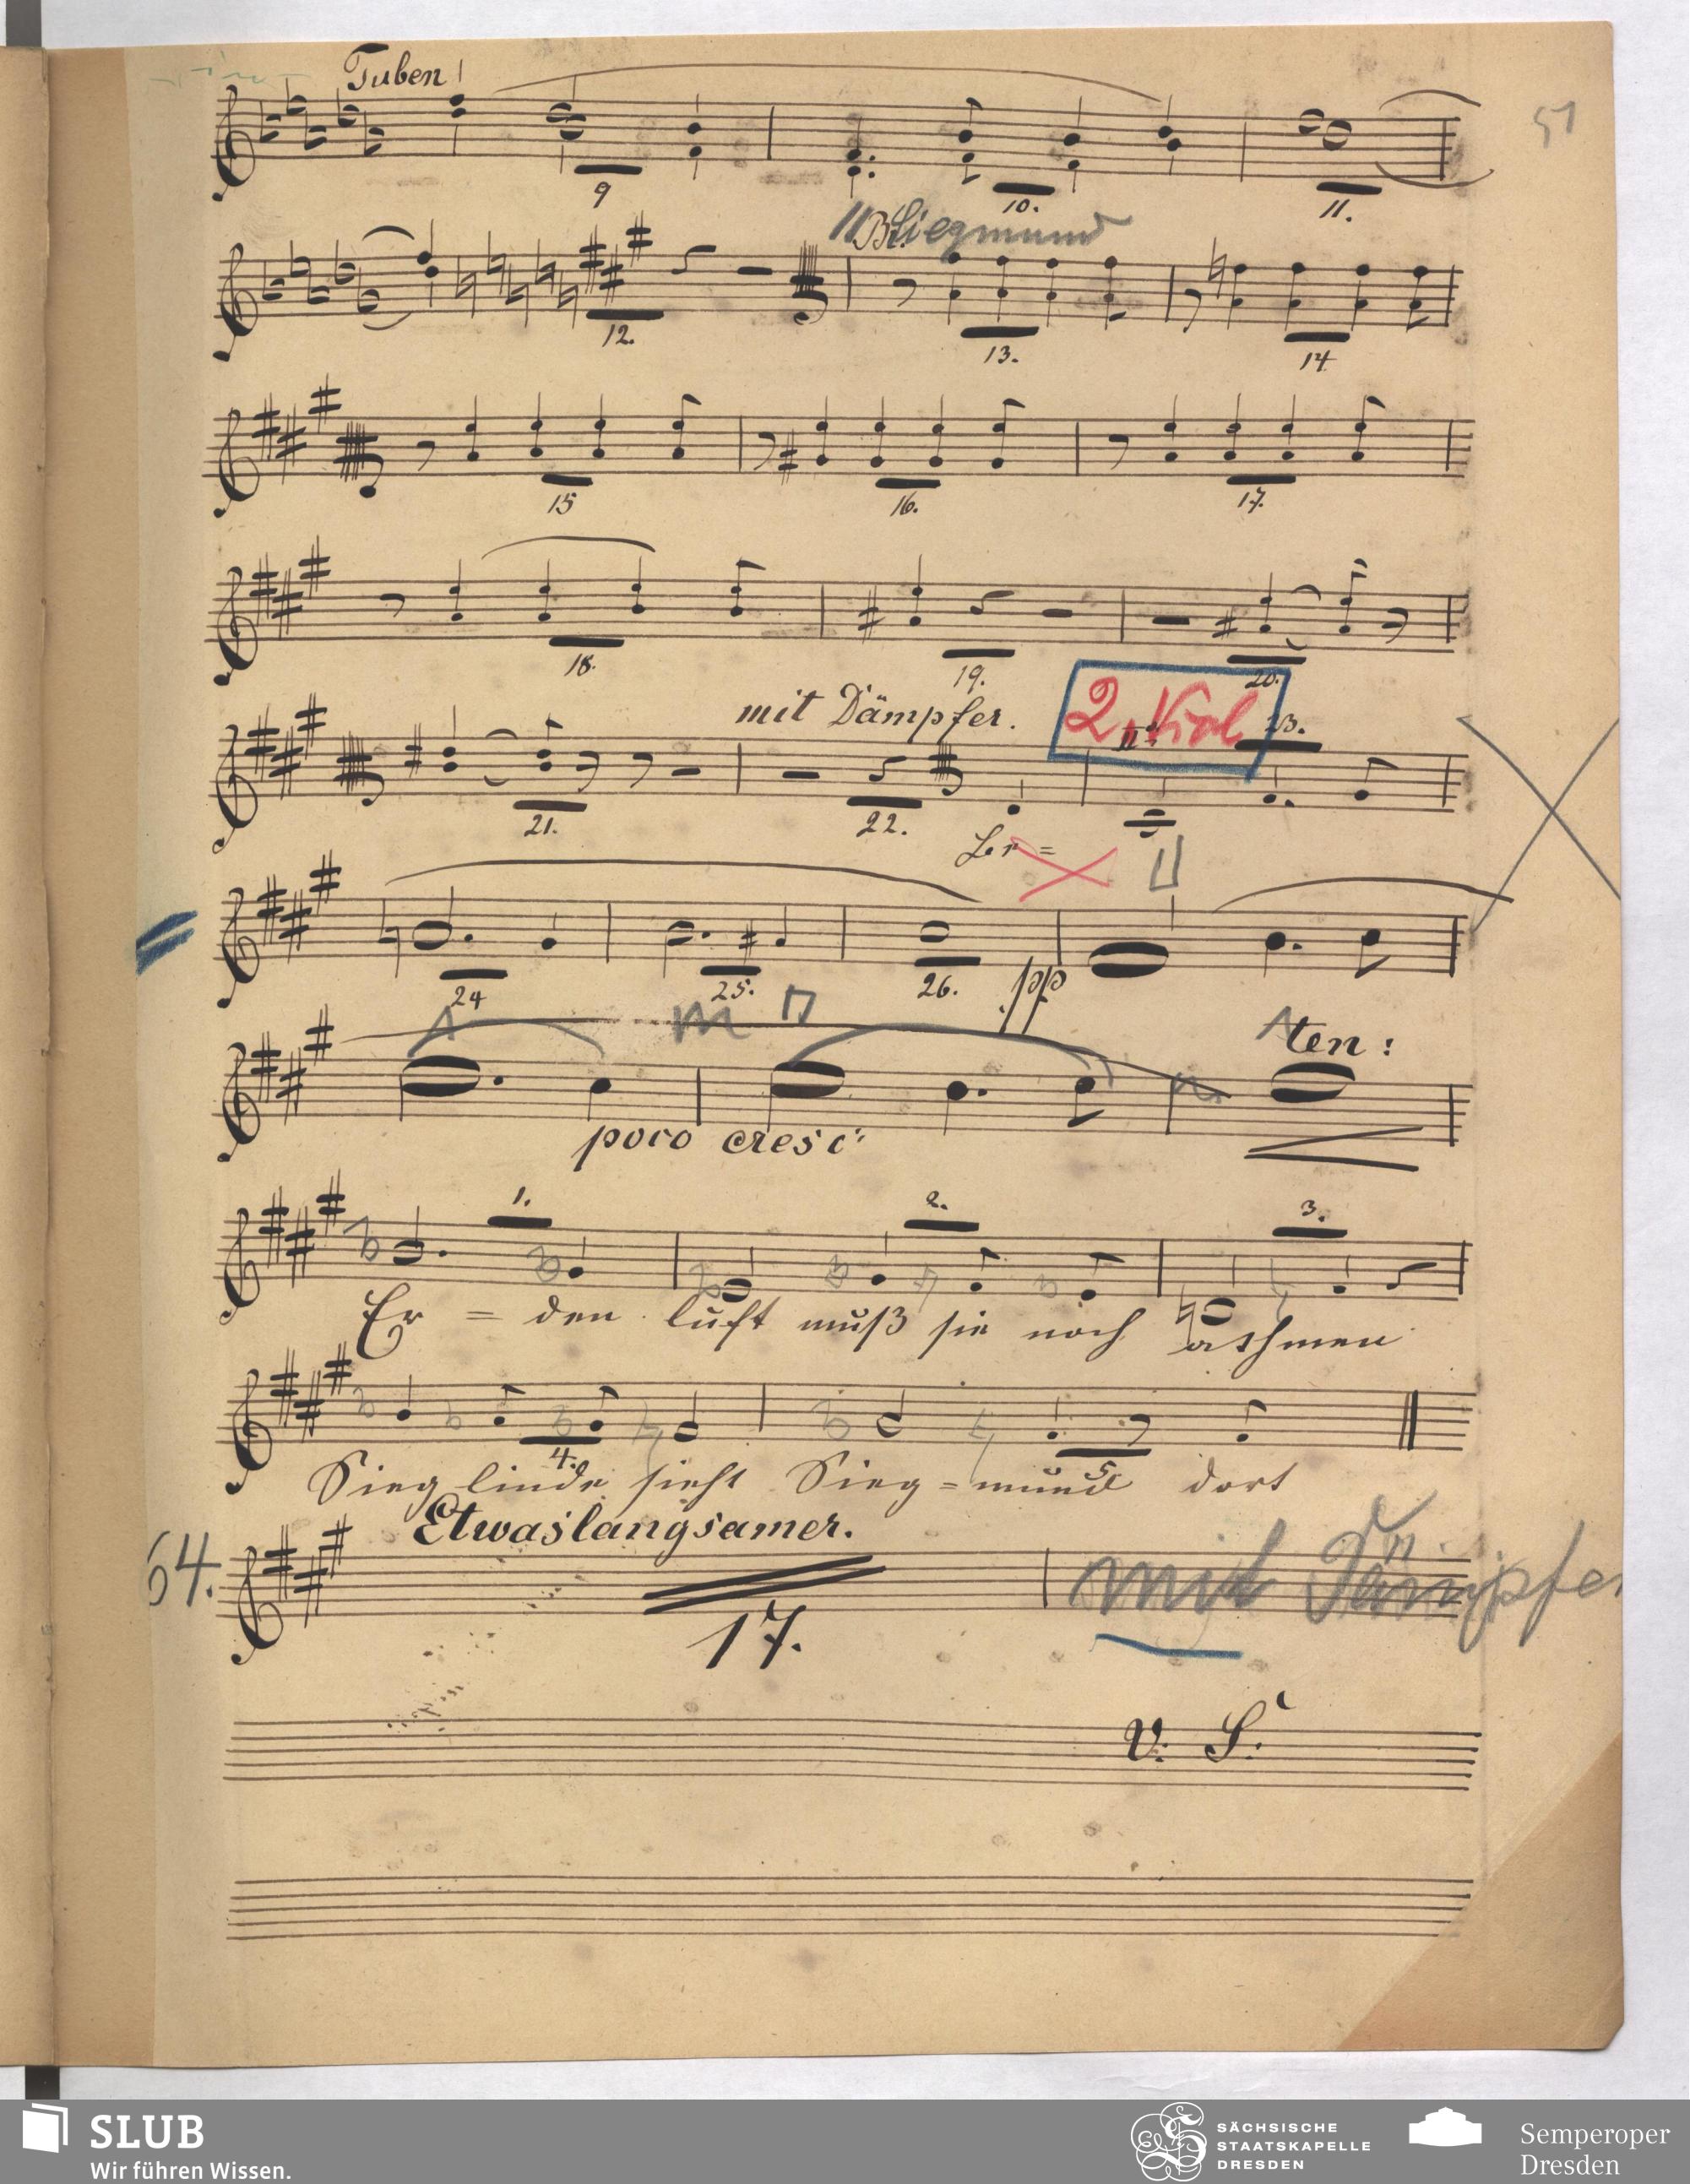 Tuben
51
9 10. 11.
Siegmund
12. 13. 14
15 16. 17.
18. 19. 20.
mit Dämpfer. 2. Viol 23.
21. 22.
24 25. 26. pp
ten:
poco cresc:
1. 2. 3.
Er = den luft muß sie noch athmen
4. 5
Sieg linde sieht Sieg = mund dort
Etwas langsamer.
64. mit Dämpfer
17.
V: S:
SLUB
Wir führen Wissen.
SÄCHSISCHE
STAATSKAPELLE
DRESDEN
Semperoper
Dresden